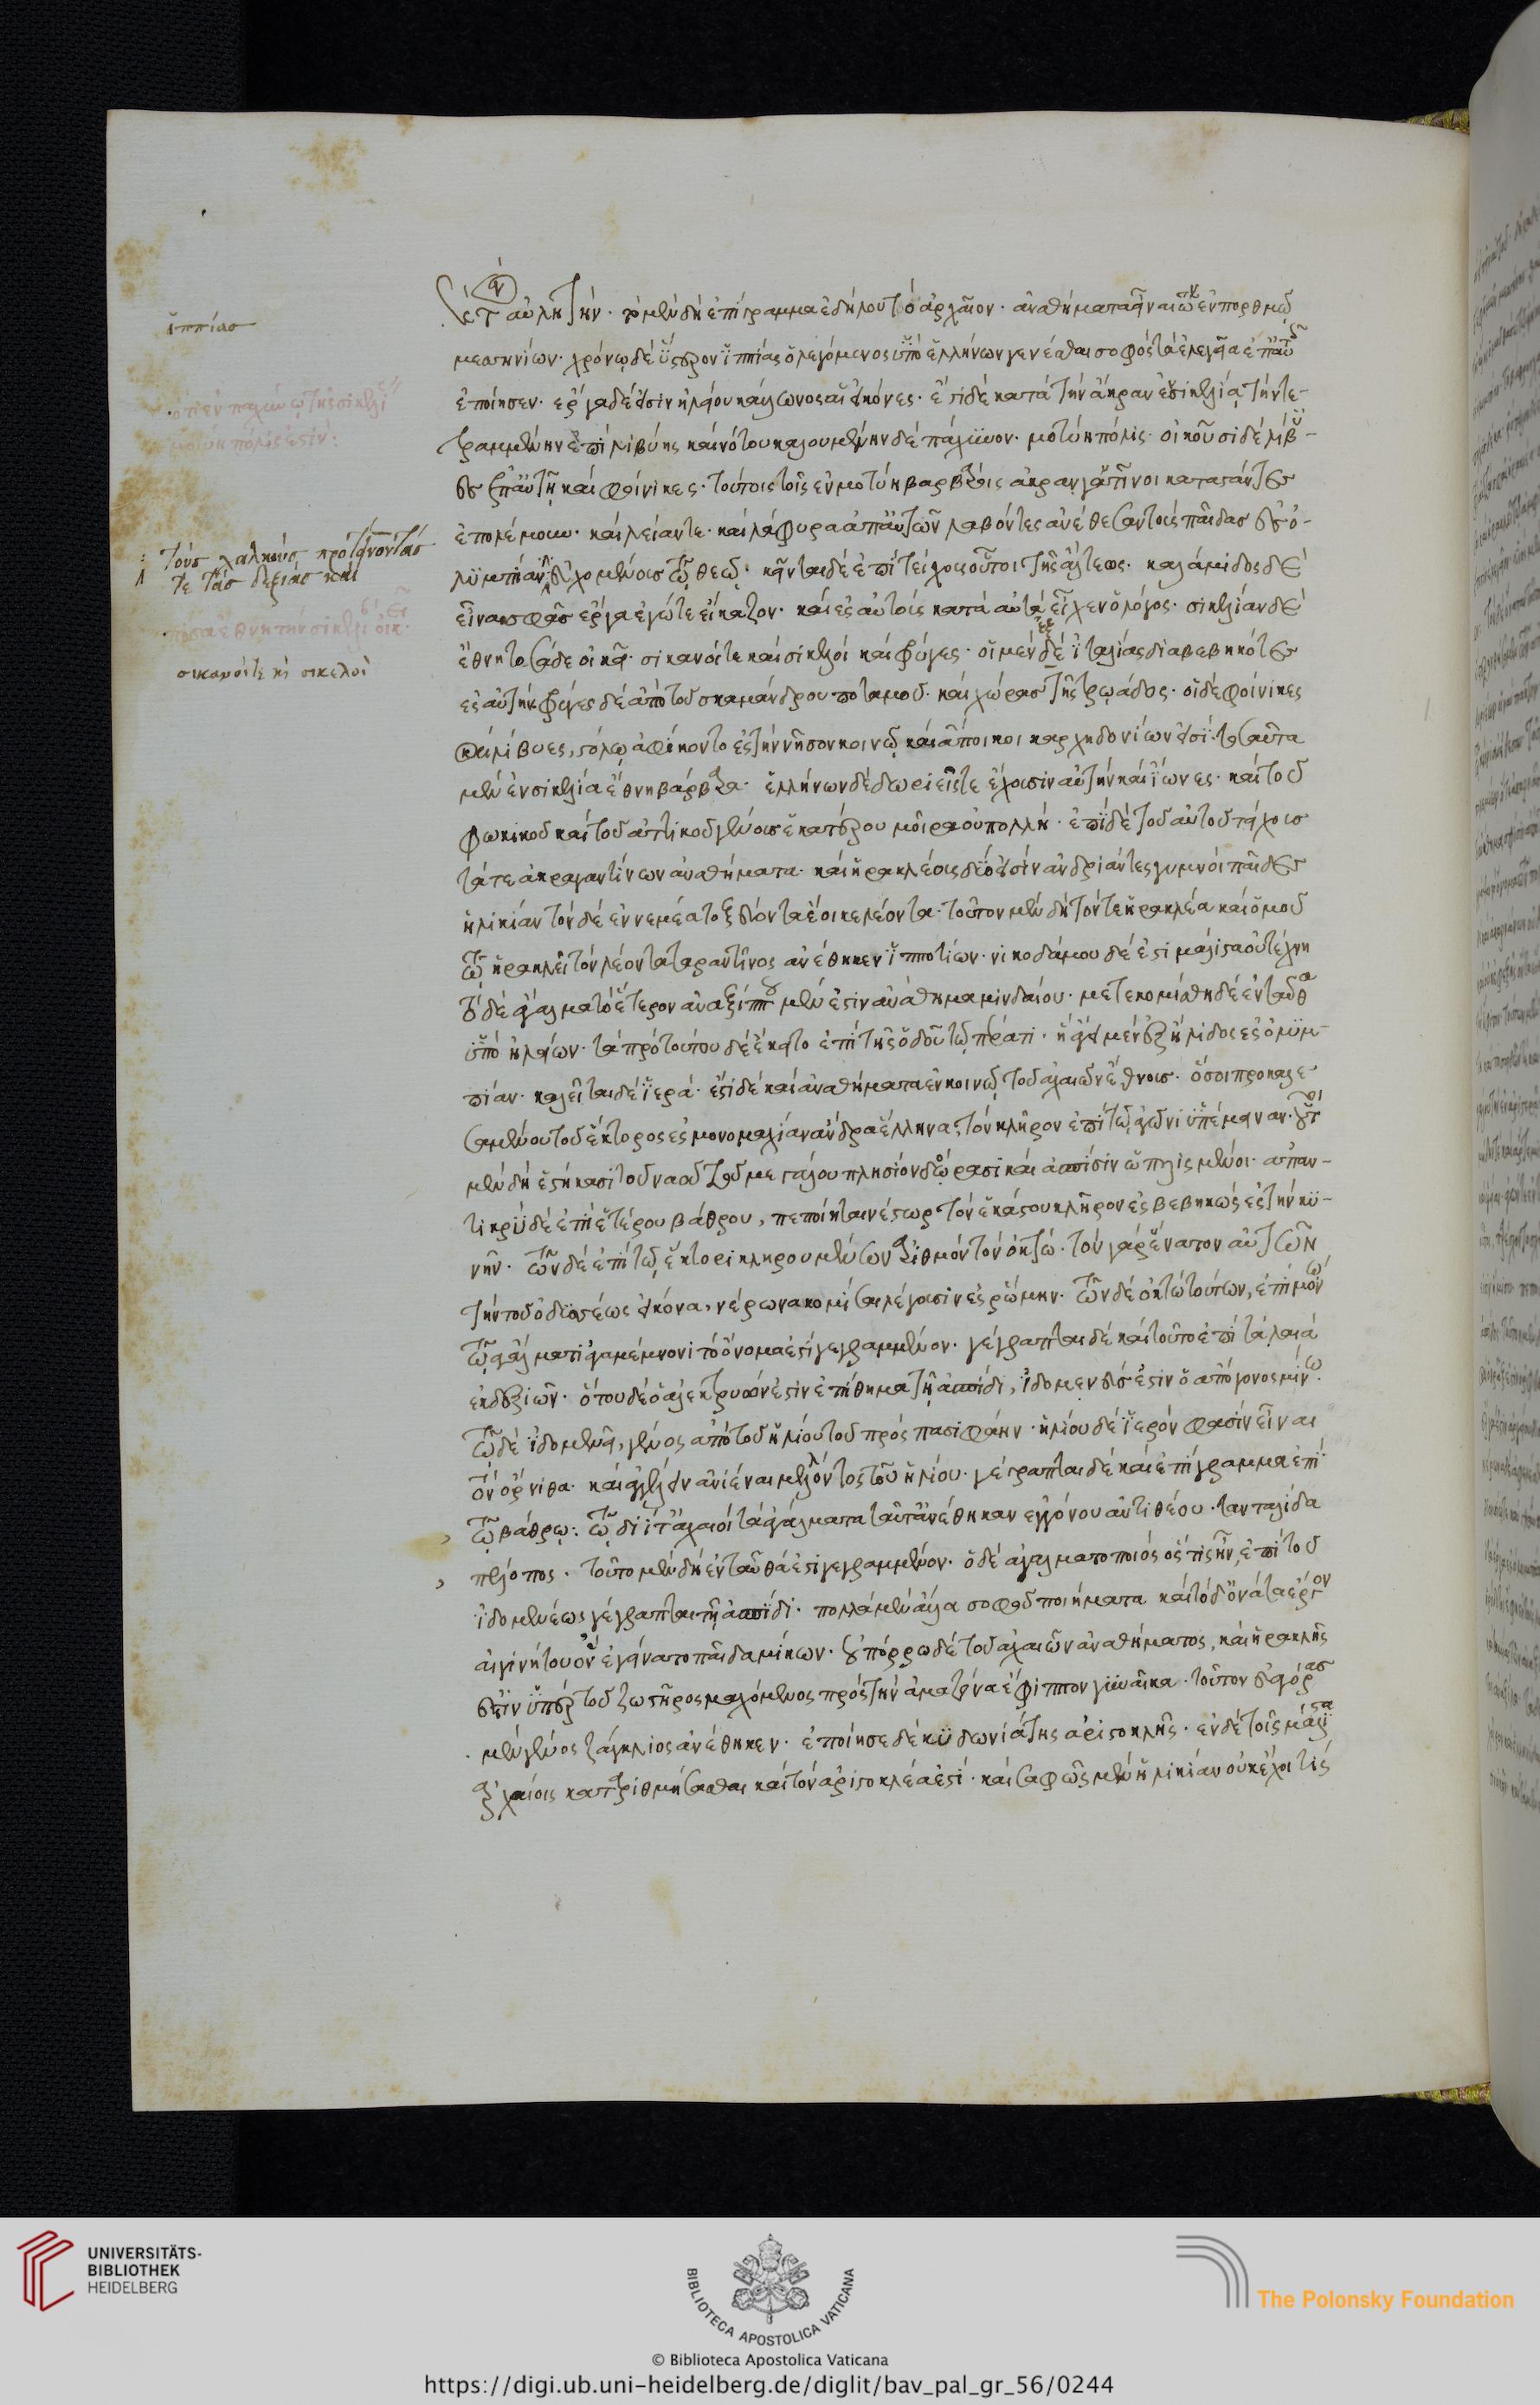 ἱππίας
ὅτι ἐν παχύνῳ τῆς σικελί
μοτύη πόλις ἐστίν:
τοὺς χαλκοῦς προτείνοντάς
τε τὰς δεξιὰς καὶ
πόσα ἔθνη τὴν σικελί οἰκεῖ
σικανοίτε κὶ σικελοὶ
τ αὐλητήν· τὸ μὲν δὴ ἐπίγραμμα ἐδήλου τὸ ἀρχαῖον· ἀναθήματα εἶναι τῶν ἐν πορθμῷ
μεσσηνίων· χρόνῳ δὲ ὕστερον ἱππίας ὁ λεγόμενος ὑπὸ ἑλλήνων γενέσθαι σοφὸς τὰ ἐλεγεῖα ἐπ' αὐτοῖς
ἐποίησεν· ἔργα δέ εἰσιν ἠλείου κάλωνος αἱ εἰκόνες· ἔστι δὲ κατὰ τὴν ἄκραν ἐν σικελίᾳ τὴν τε-
τραμμένην ἐπὶ λιβύης καὶ νότου καλουμένην δὲ πάχυνον· μοτύη πόλις· οἰκοῦσι δὲ λίβυ-
ες ἐπ' αὐτῇ καὶ φοίνικες· τούτοις τοῖς ἐν μοτύῃ βαρβάροις ἀκραγαντῖνοι καταστάντες
ἐπολέμουν· καὶ λείαν τε καὶ λάφυρα ἀπ' αὐτῶν λαβόντες ἀνέθεσαν τοὺς παῖδας ἐς ὀ-
λυμπίαν εὐχομένους τῷ θεῷ· κεῖνται δὲ ἐπὶ τείχους οὗτοι τῆς ἄλτεως· καλάμιδος δὲ
εἶναι σφᾶς ἔργα ἐγώ τε εἴκαζον· καὶ ἐς αὐτοὺς κατὰ αὐτὰ εἶχεν ὁ λόγος· σικελίαν δὲ
ἔθνη τοσάδε οἰκεῖ· σικανοίτε καὶ σικελοὶ καὶ φρύγες· οἱ μὲν ἐξ ἰταλίας διαβεβηκότες
ἐς αὐτὴν φρύγες δὲ ἀπὸ τοῦ σκαμάνδρου ποταμοῦ· καὶ χώρας τῆς τρῳάδος· οἱ δὲ φοίνικες
καὶ λίβυες, στόλῳ ἀφίκοντο ἐς τὴν νῆσον κοινῷ καὶ ἄποικοι καρχηδονίων εἰσί· τοσαῦτα
μὲν ἐν σικελίᾳ ἔθνη βάρβαρα· ἑλλήνων δὲ δωριεῖς τε ἔχουσιν αὐτὴν καὶ ἴωνες· καὶ τοῦ
φωκικοῦ καὶ τοῦ ἀττικοῦ γένους ἑκατέρου μοῖρα οὐ πολλή· ἐπὶ δὲ τοῦ αὐτοῦ τείχους
τά τε ἀκραγαντίνων ἀναθήματα· καὶ ἡρακλέους δύο εἰσὶν ἀνδριάντες γυμνοὶ παῖδες
ἡλικίαν τὸν δὲ ἐν νεμέᾳ τοξεύοντα ἔοικε λέοντα· τοῦτον μὲν δὴ τόν τε ἡρακλέα καὶ ὁμοῦ
τῷ ἡρακλεῖ τὸν λέοντα ταραντῖνος ἀνέθηκεν ἱπποτίων· νικοδάμου δέ ἐστι μαιναλίου τέχνη
τὸ δὲ ἄγαλμα τὸ ἕτερον ἀναξίππου μέν ἐστιν ἀνάθημα μενδαίου· μετεκομίσθη δὲ ἐνταῦθα
ὑπὸ ἠλείων· τὰ πρὸ τούτου δὲ ἔκειτο ἐπὶ τῆς ὁδοῦ τῷ πέρατι· ἣ ἄγει μὲν ἐξ ἤλιδος ἐς ὀλυμ-
πίαν· καλεῖται δὲ ἱερά· ἔστι δὲ καὶ ἀναθήματα ἐν κοινῷ τοῦ ἀχαιῶν ἔθνους· ὅσοι προκαλε-
σαμένου τοῦ ἕκτορος ἐς μονομαχίαν ἄνδρα ἕλληνα, τὸν κλῆρον ἐπὶ τῷ ἀγῶνι ὑπέμειναν· οὗτοι
μὲν δὴ ἑστήκασι τοῦ ναοῦ τοῦ μεγάλου πλησίον δόρασι καὶ ἀσπίσιν ὡπλισμένοι· ἀπαν-
τικρὺ δὲ ἐπὶ ἑτέρου βάθρου, πεποίηται νέστωρ τὸν ἑκάστου κλῆρον ἐσβεβηκὼς ἐς τὴν κυ-
νῆν· τῶν δὲ ἐπὶ τῷ ἕκτορι κληρουμένων ἀριθμὸν τὸν ὀκτώ· τὸν γὰρ ἔνατον αὐτῶν
τὴν τοῦ ὀδυσσέως εἰκόνα, νέρωνα κομίσαι λέγουσιν ἐς ῥώμην· τῶν δὲ ὀκτὼ τούτων, ἐπὶ μόνῳ
τῷ ἀγάλματι ἀγαμέμνονι τὸ ὄνομά ἐστι γεγραμμένον· γέγραπται δὲ καὶ τοῦτο ἐπὶ τὰ λαιὰ
ἐκ δεξιῶν· ὅτου δὲ ὁ ἀλεκτρυών ἐστιν ἐπίθημα τῇ ἀσπίδι, ἰδομενεύς ἐστιν ὁ ἀπόγονος μίνω·
τῷ δὲ ἰδομενεῖ, γένος ἀπὸ τοῦ ἡλίου τοῦ πρὸς πασιφάην· ἡλίου δὲ ἱερόν φασιν εἶναι
τὸν ὄρνιθα· καὶ ἀγγέλλειν ἀνιέναι μέλλοντος τοῦ ἡλίου· γέγραπται δὲ καὶ ἐπίγραμμα ἐπὶ
τῷ βάθρῳ: τῷ διῒ τἀχαιοὶ τἀγάλματα ταῦτ' ἀνέθηκαν ἐγγόνου ἀντιθέου· τανταλίδα
πέλοπος· τοῦτο μὲν δὴ ἐνταῦθά ἐστι γεγραμμένον· ὁ δὲ ἀγαλματοποιὸς ὅστις ἦν, ἐπὶ τοῦ
ἰδομενέως γέγραπται τῇ ἀσπίδι· πολλὰ μὲν ἄλλα σοφοῦ ποιήματα καὶ τόδ' ὀνάτα ἔργον
αἰγινήτου ὃν ἐγείνατο παῖδα μίκων· οὐ πόρρω δὲ τοῦ ἀχαιῶν ἀναθήματος, καὶ ἡρακλῆς
ἐστὶν ὑπὲρ τοῦ ζωστῆρος μαχόμενος πρὸς τὴν ἀμαζόνα ἔφιππον γυναῖκα· τοῦτον εὐαγόρας
μὲν γένος ζαγκλαῖος ἀνέθηκεν· ἐποίησε δὲ κυδωνιάτης ἀριστοκλῆς· ἐν δὲ τοῖς μάλιστα
ἀρχαίοις καταριθμήσασθαι καὶ τὸν ἀριστοκλέα ἐστί· καὶ σαφῶς μὲν ἡλικίαν οὐκ ἔχοι τις
UNIVERSITÄTS-
BIBLIOTHEK
HEIDELBERG
BIBLIOTECA APOSTOLICA VATICANA
The Polonsky Foundation
© Biblioteca Apostolica Vaticana
https://digi.ub.uni-heidelberg.de/diglit/bav_pal_gr_56/0244